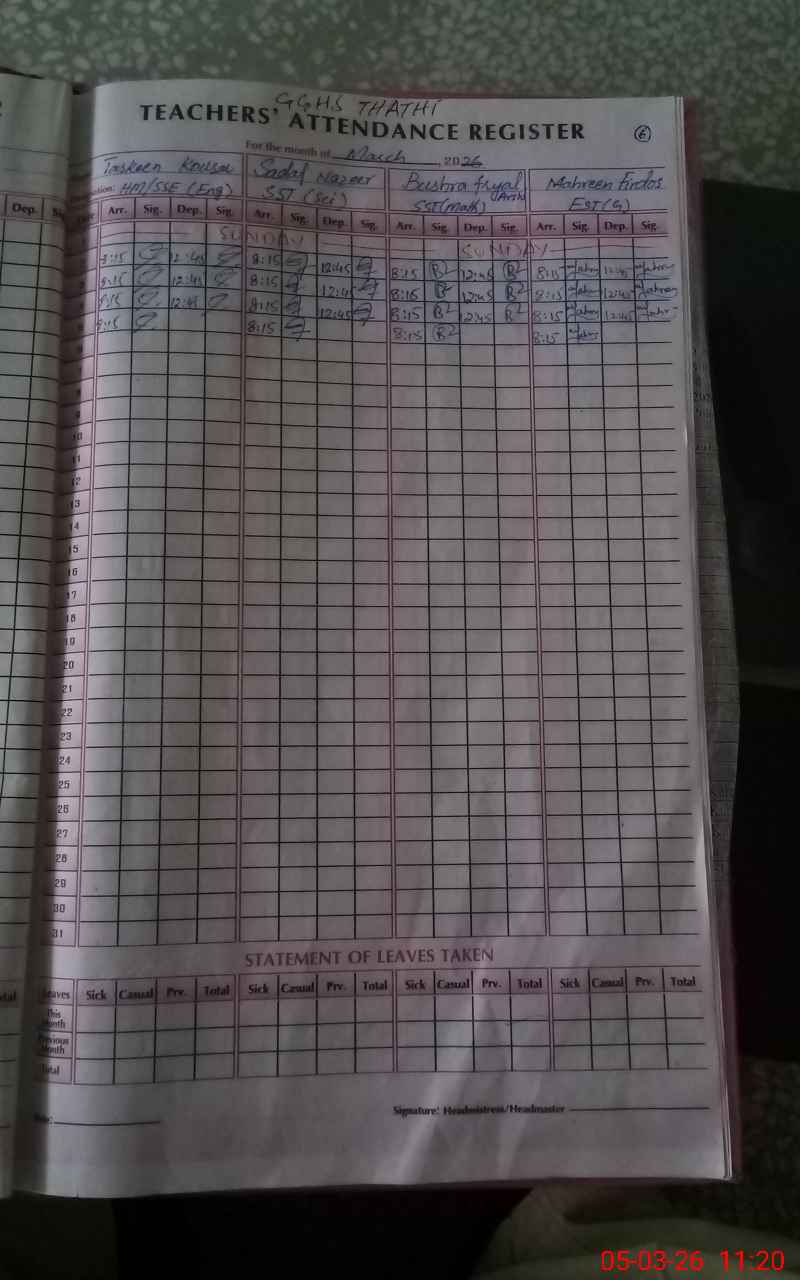 GGHS THATHI
TEACHERS' ATTENDANCE REGISTER
6
For the month of March, 2026
Taskeen Sadaf Nazeer Bushra fryal Mahreen firdos
HM/SSE (Eng) SST (Sci) SST (Math) EST (G)
Dep. Arr. Sig. Dep. Sig. Arr. Sig. Dep. Sig. Arr. Sig. Dep. Sig. Arr. Sig. Dep. Sig.
SUNDAY SUNDAY
8:15 12:45 8:15 12:45 8:15 12:45 8:15 12:45
8:15 12:45 8:15 12:45 8:15 12:45 8:15 12:45
8:15 12:45 8:15 12:45 8:15 12:45 8:15 12:45
8:15 8:15 8:15 8:15
9
10
11
12
13
14
15
16
17
18
19
20
21
22
23
24
25
26
27
28
29
30
31
STATEMENT OF LEAVES TAKEN
Leaves Sick Casual Prv. Total Sick Casual Prv. Total Sick Casual Prv. Total Sick Casual Prv. Total
This Month
Previous Month
Total
Signature: Headmistress/Headmaster
05-03-26 11:20